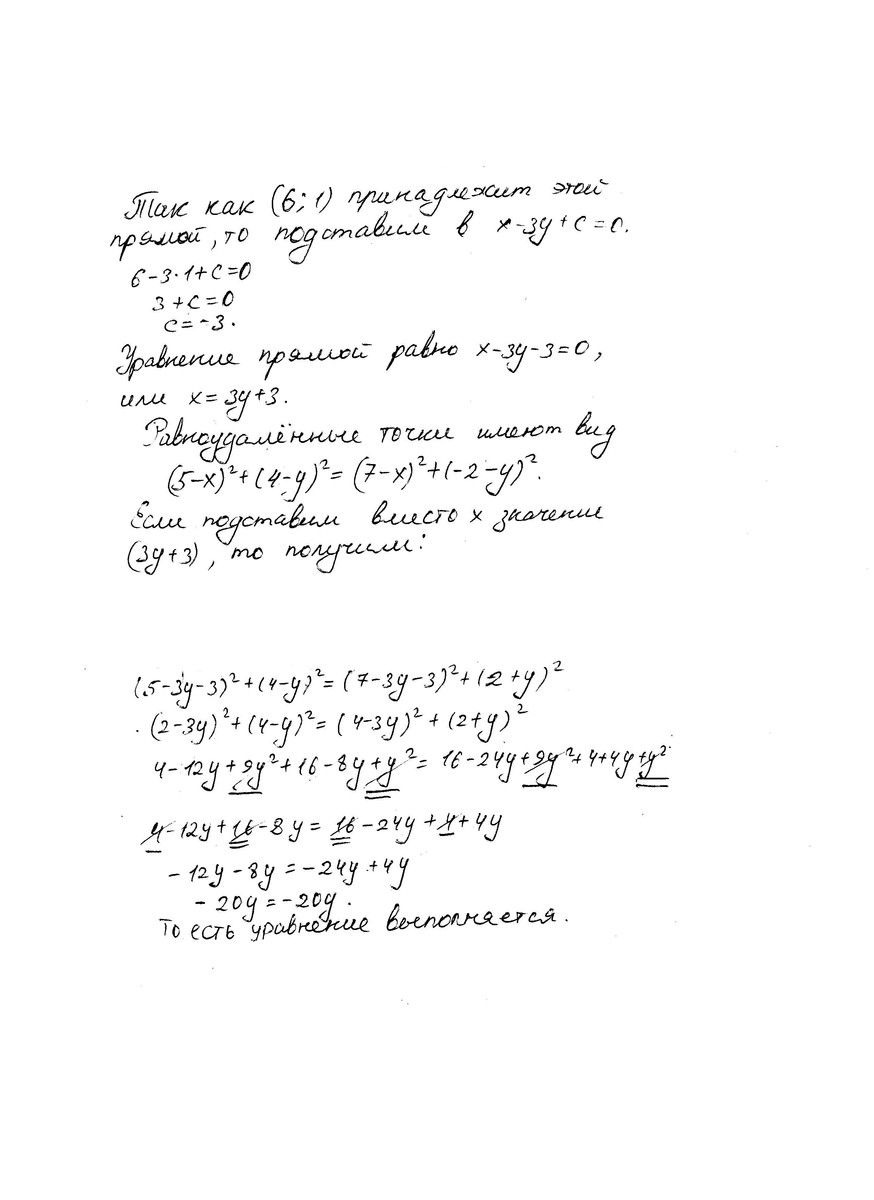 Так как (6; 1) принадлежит этой
прямой, то подставим в x-3y+c=0.
6-3·1+c=0
3+c=0
c=-3.
Уравнение прямой равно x-3y-3=0,
или x=3y+3.
Равноудалённые точки имеют вид
(5-x)²+(4-y)²=(7-x)²+(-2-y)².
Если подставим вместо x значение
(3y+3), то получим:
(5-3y-3)²+(4-y)²=(7-3y-3)²+(2+y)²
(2-3y)²+(4-y)²=(4-3y)²+(2+y)²
4-12y+9y²+16-8y+y²=16-24y+9y²+4+4y+y²
4-12y+16-8y=16-24y+4+4y
-12y-8y=-24y+4y
-20y=-20y.
То есть уравнение выполняется.